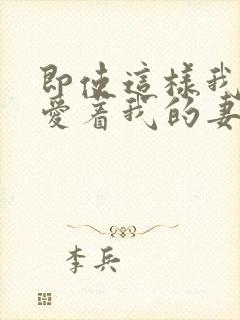 即使這樣我
愛着我的妻
李兵